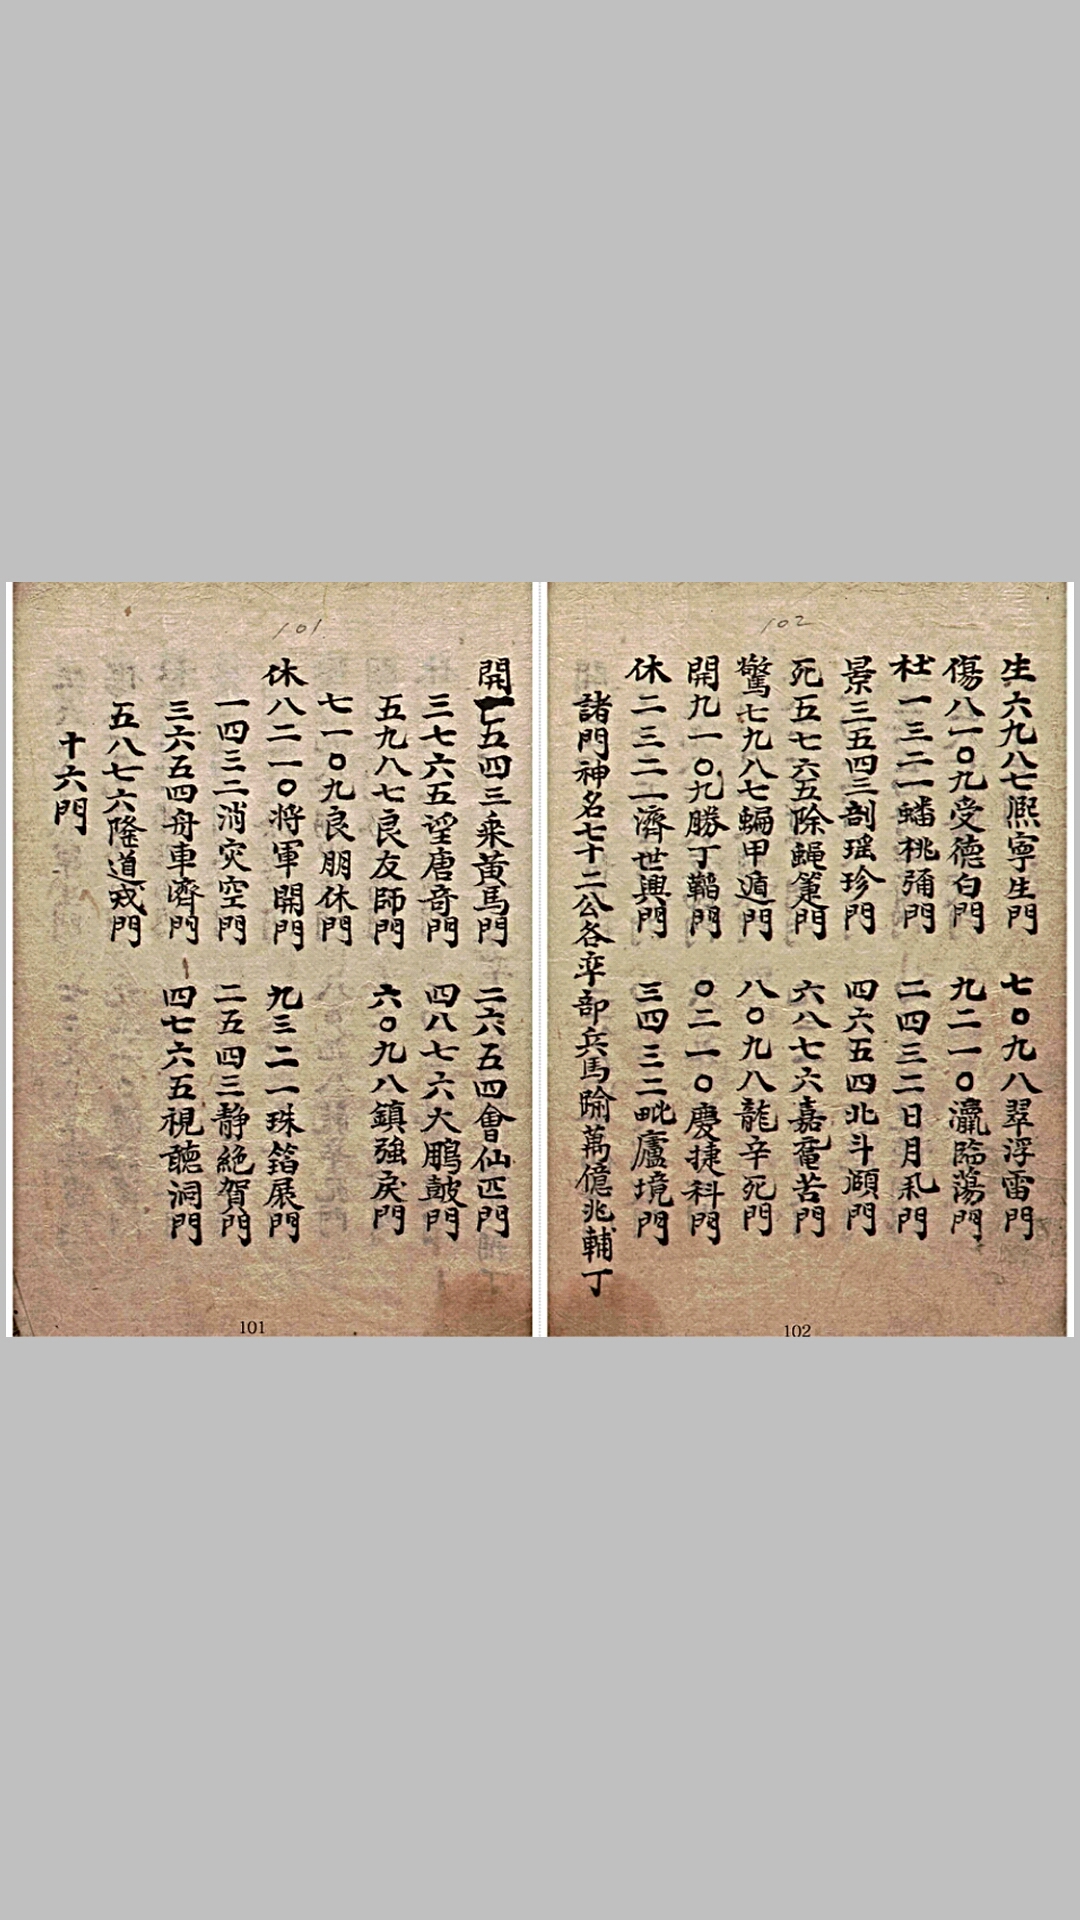 101
開一五四三乗黃馬門 二六五四會仙匹門
三七六五望唐奇門 四八七六大鵬皷門
五九八七良友師門 六〇九八鎮強戾門
七一〇九良朋休門
休八二一〇將軍開門 九三二一珠箔展門
一四三二消灾空門 二五四三静絶賀門
三六五四舟車濟門 四七六五視聽洞門
五八七六隆道戎門
十六門
101
102
生六九八七熈寧生門 七〇九八翠浮雷門
傷八一〇九受德白門 九二一〇瀛臨蕩門
杜一三二一蟠桃彌門 二四三二日月門
景三五四三剖瑶珍門 四六五四北斗頤門
死五七六五除蠅箑門 六八七六嘉苦門
驚七九八七蝙甲遁門 八〇九八龍辛死門
開九一〇九勝丁鞱門 〇二一〇慶捷科門
休二三二一濟世興門 三四三二毗廬境門
諸門神名七十二公各率部兵馬隃萬億兆輔丁
102